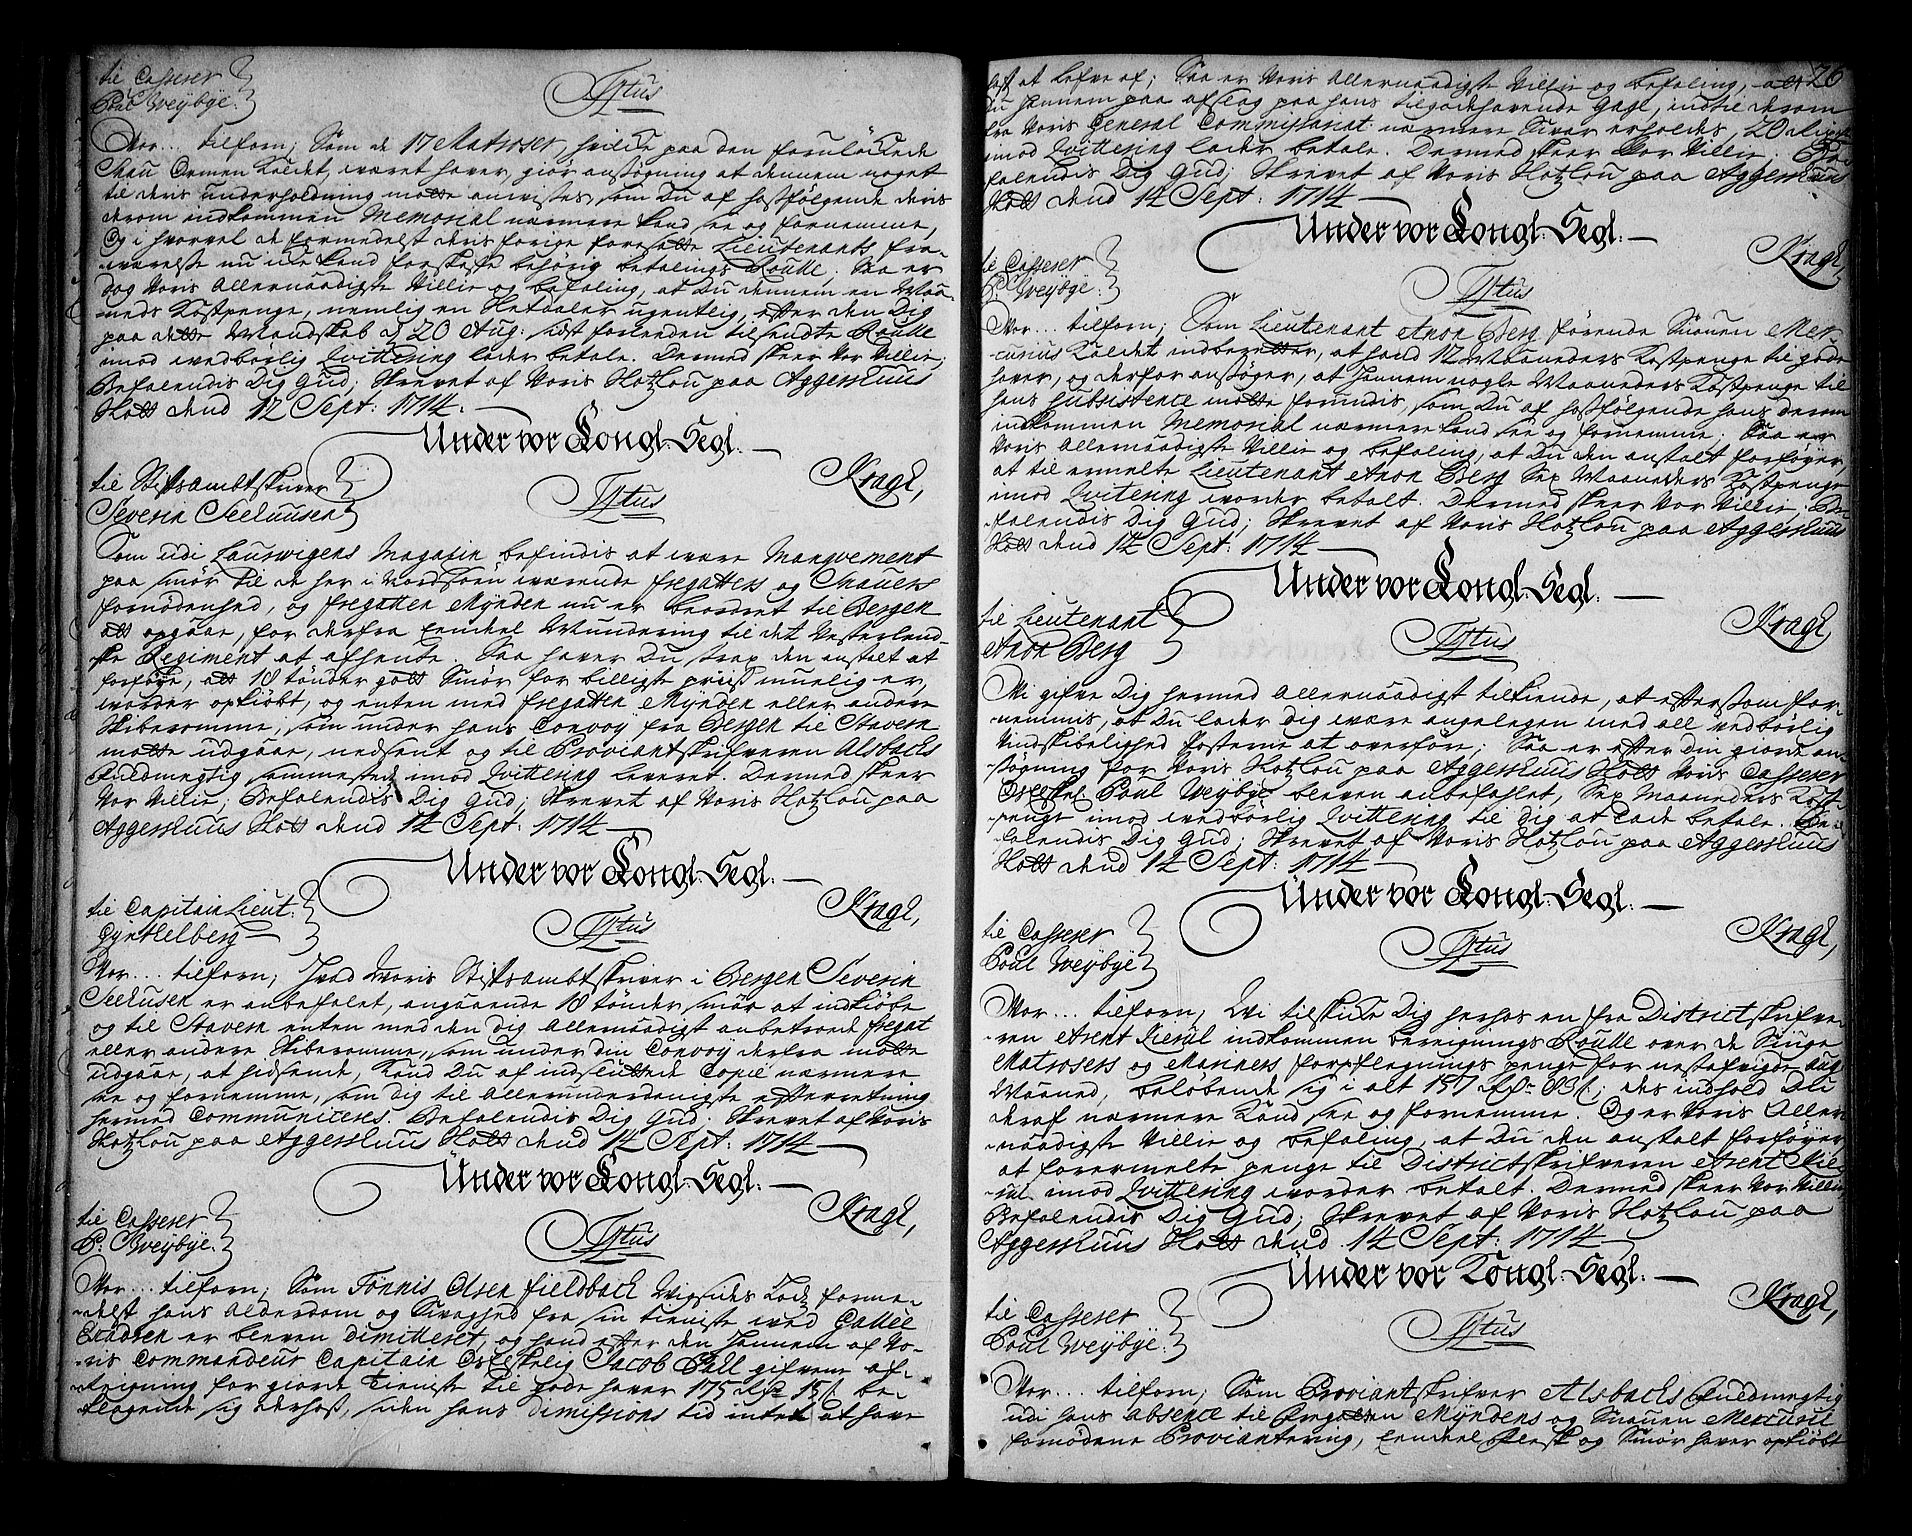 til Casserer
Poul Weybye.
Titus
Vor... tilforn; Som de 17 Matroser, hvilche paa den forulöchede
Snau Ormen Kaldet, været haver, giör ansögning at dennem noget
til deris underholdning motte anvises, som Du af hosfölgende deris
derom indkommen Memorial nærmere kand see og fornemme,
Og i hvorvel de formedelst deris forige foresatte Lieutenants fra-
værelse nu icke kand forskaffe behörig betalings Roulle. Saa er
dog Voris Allernaadigste Villie og befaling, at Du dennem en Maa-
neds Kostpenge, nemlig en Hetdaler ugentlig, efter den Dig
paa dette Mandskab d 20 Aug: sidst forleden tilsendte Roulle
imod vedbörlig Qvittering lader betale. Dermed skeer Vor Villie;
Befalendis Dig Gud; Skrevet af Voris Hotzlou paa Aggershuus
Slott dend 12 Sept: 1714.
Under vor Kongl. Segl.
Kragh,
til Stiftsambtskriver
Severin Seehuusen
Titus
Som udi Laurwigens Magasin befindis at være Manqvement
paa Smör til de her i Nordsöen værende Fregatters og Snauers
fornödenhed, og Fregatten Mynden nu er beordret til Bergen
att opgaae, for derfra Eendeel Mundering til det Vesterlend-
ske Regiment at afhente. Saa haver Du strax den anstalt at
forföye, att 18 tönder gott Smör for billigste priiss muelig er,
vorder opkiöbt, og enten med Fregatten Mynden eller andere
Skiberomme, som under hans Convoy fra Bergen til Stavern
motte udgaae, nedsent og til Proviantskrifveren Alsbachs
fuldmegtig sammested imod Qvittering leveret. Dermed skeer
Vor Villie; Befalendis Dig Gud; Skrevet af Voris Hotzlou paa
Aggershuus Slott dend 14 Sept: 1714
Under vor Kongl. Segl.
Kragh,
til Capitain Lieut:
Gynthelberg
Titus
Vor... tilforn; Hvad Voris Stiftsambtskriver i Bergen Severin
Seehusen er anbefalet, angaaende 18 tönder smör at indkiöbe
og til Stavern enten med den dig Allernaadigst anbetroede Fregat
eller andere Skiberomme, som under din Convoy derfra motte
udgaae, at hidsende, Kand Du af indsluttede Copie nærmere
see og fornemme, som dig til Allerunderdanigste efterretning
hermed Communiceres. Befalendis Dig Gud; Skrevet af Voris
Hotzlou paa Aggershuus Slott dend 14 Sept: 1714
Under vor Kongl. Segl.
Kragh,
til Casserer
P: Weybye.
Titus
Vor... tilforn; Som Tönnis Olsen Fieldback Vigsides Lods forme-
delst hans Alderdom og Svaghed fra sin tieniste ved Gallee
Esadren er bleven dimitteret, og hand efter den Hannem af Vo-
ris Commandeur Capitain Os Elskelig Jacob Pall gifvene af-
reigning for giorde Tieniste til gode haver 175 Rdr 15 s. be-
klagende sig derhos, siden hans dimissions tid intet at have
26
lest at lefve af; Saa er Voris Allernaadigste Villie og befaling, att
Du Hannem paa afslag paa hans tilgodehavende Gage, indtil derom
fra Voris General Commissariat nærmere Svar erholdes, 20
imod Qvittering lader betale. Dermed skeer Vor Villie; Be-
falendis Dig Gud; Skrevet af Voris Hotzlou paa Aggershuus
Slott dend 14 Sept: 1714
Under vor Kongl. Segl.
Kragh,
til Casserer
P: Weybye.
Titus
Vor... tilforn; Som Lieutenant Anon Berg förende Snauen Mer-
curius Kaldet indberetter, at hand 12 Maaneders Kostpenge til gode
haver, og derfor ansöger, at Hannem nogle Maaneders Kostpenge til
hans subsistence motte forundis, som Du af hosfölgende hans derom
indkommen Memorial nærmere kand see og fornemme; Saa er
Voris Allernaadigste Villie og befaling, at Du den anstalt forföyer,
at til ermelte Lieutenant Anon Berg Sex Maaneders Kostpenge
imod Qvitering vorder betalt. Dermed skeer Vor Villie; Be-
falendis Dig Gud; Skrevet af Voris Hotzlou paa Aggershuus
Slott dend 14 Sept: 1714
Under vor Kongl. Segl.
Kragh,
til Lieutenant
Anon Berg
Titus
Vi gifve Dig hermed Allernaadigst tilkiende, at eftersom for-
nemmis, at Du lader dig være angelegen med all vedbörlig
Vindskibelighed Posterne at overföre; Saa er efter din giorde an-
sögning for Voris Hotzlou paa Aggershuus Slott Voris Casserer
Os Elskel: Poul Weybye bleven anbefahlet, Sex Maaneders Kost-
penge imod vedbörlig Qvittering til Dig at lade betale. Be-
falendis Dig Gud; Skrevet af Voris Hotzlou paa Aggershuus
Slott dend 14 Sept: 1714
Under vor Kongl. Segl.
Kragh,
til Casserer
Poul Weybye
Titus
Vor... tilforn; Vi tilskicke Dig herhos en fra Districtskrifve-
ren Arent Kierul indkommen bereignings Roulle over de Siuge
Matrosers og Mariners forpflegnings penge for nestafvigte Aug:
Maaned, belöbende sig i alt 157 Rdr 83 s; des indhold Du
deraf nærmere Kand see og fornemme. Og er Voris Aller-
naadigste Villie og befaling, at Du den anstalt forföyer
at forermelte penge til Districtskrifveren Arent Kie-
rul imod Qvittering vorder betalt. Dermed skeer Vor Villie
Befalendis Dig Gud; Skrevet af Voris Hotzlou paa
Aggershuus Slott dend 14 Sept: 1714
Under vor Kongl. Segl.
Kragh,
til Casserer
Poul Weybye.
Titus
Vor... tilforn; Som Proviantskrifver Alsbachs fuldmegtig
udi hans absence til Fregatten Myndens og Snauen Mercurii
fornödene Proviantering, Eendeel flesk og Smör haver opkiöbt